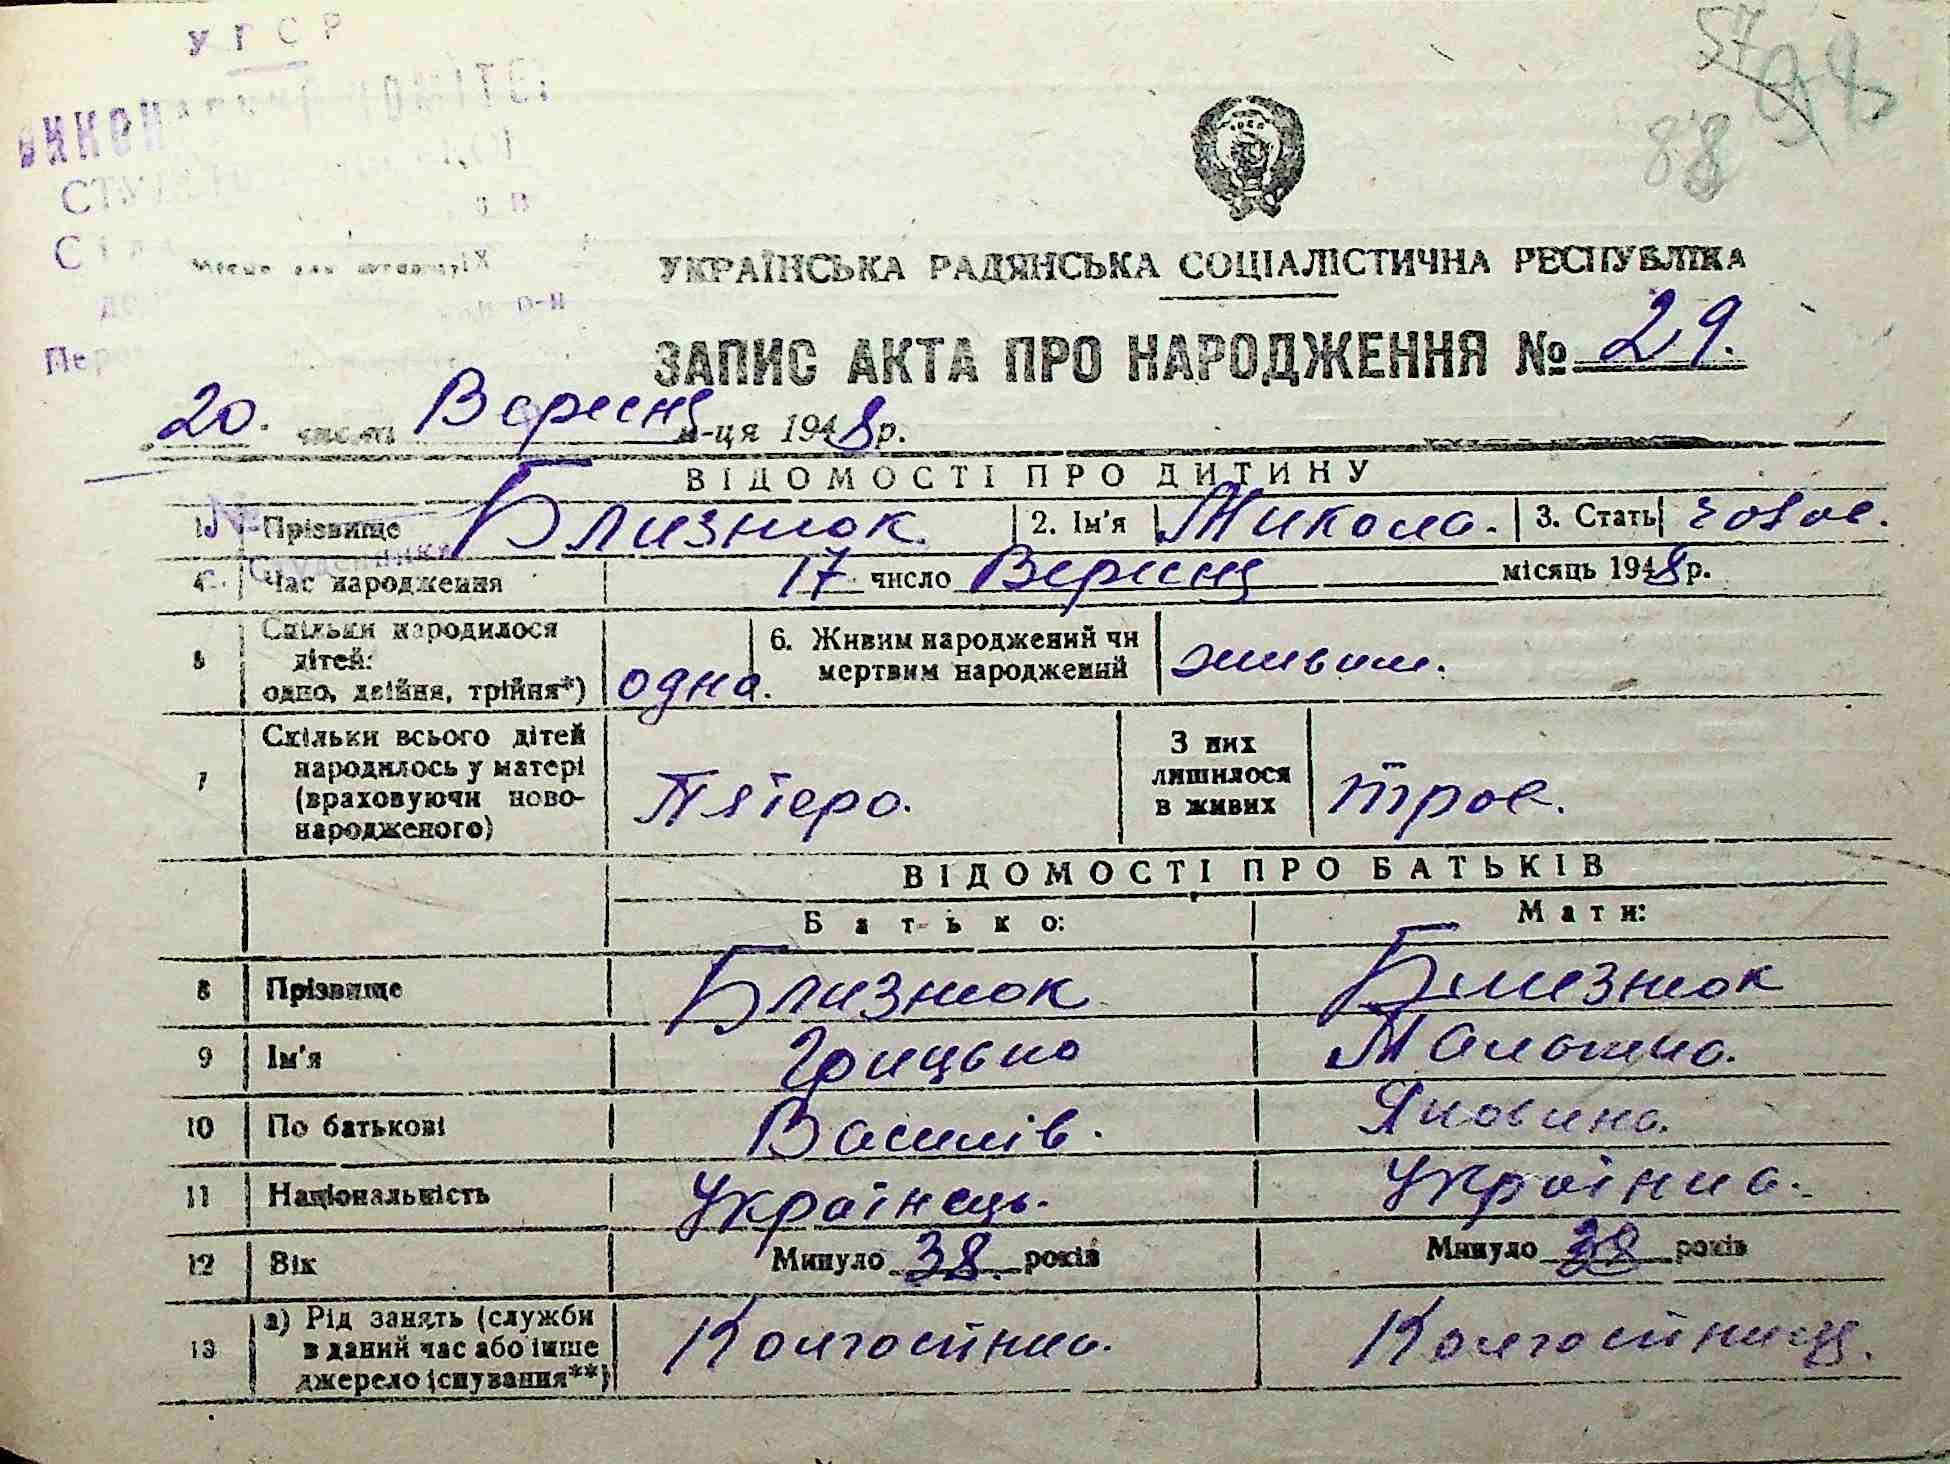 УРСР
57
94
88
УКРАЇНСЬКА РАДЯНСЬКА СОЦІАЛІСТИЧНА РЕСПУБЛІКА
ЗАПИС АКТА ПРО НАРОДЖЕННЯ № 29.
20. числа Вересня м-ця 1948 р.
ВІДОМОСТІ ПРО ДИТИНУ
1. Прізвище Близнюк. 2. Ім'я Микола. 3. Стать
4. Час народження 17 число Вересня місяць 1948 р.
5 Скільки народилося дітей: одно, двійня, трійня*) одна. 6. Живим народжений чи мертвим народжений живим.
7 Скільки всього дітей народилось у матері (враховуючи новонародженого) Пятеро. З них лишилося в живих троє.
ВІДОМОСТІ ПРО БАТЬКІВ
Батько: Мати:
8 Прізвище Близнюк Близнюк
9 Ім'я Грицько
10 По батькові Василів. Яковина.
11 Національність Українець. Українка.
12 Вік Минуло 38. років Минуло 38 років
13 а) Рід занять (служби в даний час або інше джерело існування**) Колгоспник. Колгоспниця.